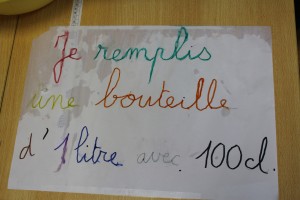 Je remplis
une bouteille
d'1 litre avec 100cl.